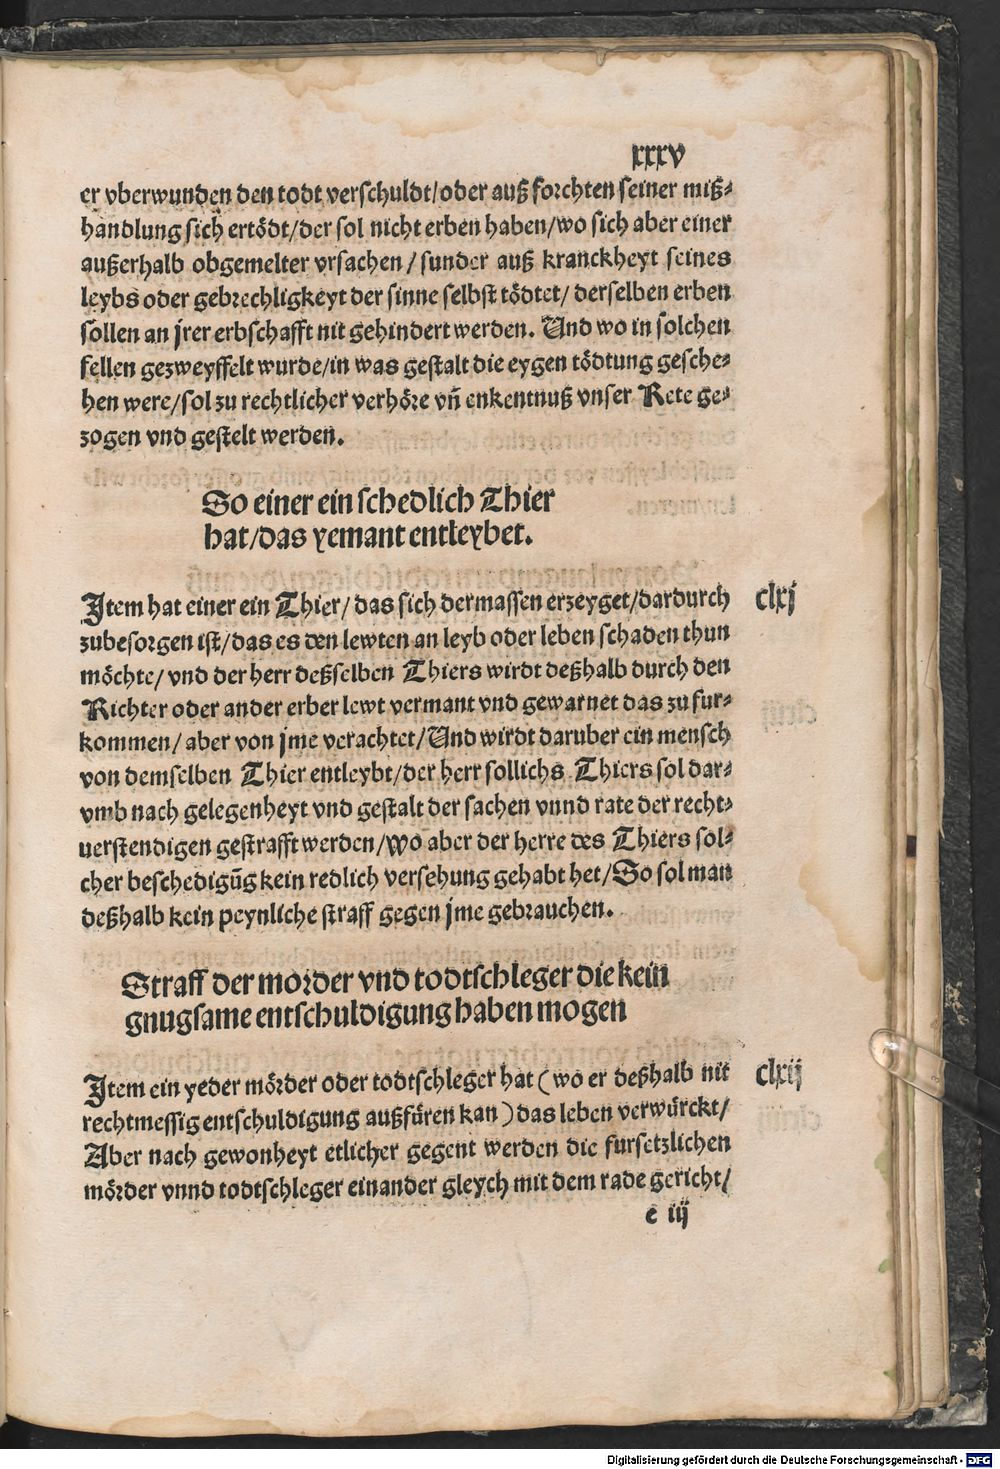 xxxv
er vberwunden den todt verschuldt/oder auß forchten seiner miß⸗
handlung sich ertödt/der sol nicht erben haben/wo sich aber einer
außerhalb obgemelter vrsachen/sunder auß kranckheyt seines
leybs oder gebrechligkeyt der sinne selbst tödtet/derselben erben
sollen an jrer erbschafft nit gehindert werden. Und wo in solchen
fellen gezweyffelt wurde/in was gestalt die eygen tödtung gesche⸗
hen were/sol zu rechtlicher verhöre vñ enkentnuß vnser Rete ge⸗
zogen vnd gestelt werden.
So einer ein schedlich Thier
hat/das yemant entleybet.
Jtem hat einer ein Thier/das sich dermassen erzeyget/dardurch
zubesorgen ist/das es den lewten an leyb oder leben schaden thun
möchte/vnd der herr deßselben Thiers wirdt deßhalb durch den
Richter oder ander erber lewt vermant vnd gewarnet das zu fur⸗
kommen/aber von jme verachtet/Und wirdt daruber ein mensch
von demselben Thier entleybt/der herr sollichs Thiers sol dar⸗
vmb nach gelegenheyt vnd gestalt der sachen vnnd rate der recht⸗
uerstendigen gestrafft werden/wo aber der herre des Thiers sol⸗
cher beschedigūg kein redlich versehung gehabt het/So sol man
deßhalb kein peynliche straff gegen jme gebrauchen.
clxj
Straff der morder vnd todtschleger die kein
gnugsame entschuldigung haben mogen
Jtem ein yeder mörder oder todtschleger hat (wo er deßhalb nit
rechtmessig entschuldigung außfüren kan) das leben verwürckt/
Aber nach gewonheyt etlicher gegent werden die fursetzlichen
mörder vnnd todtschleger einander gleych mit dem rade gericht/
clxij
e iij
Digitalisierung gefördert durch die Deutsche Forschungsgemeinschaft - DFG